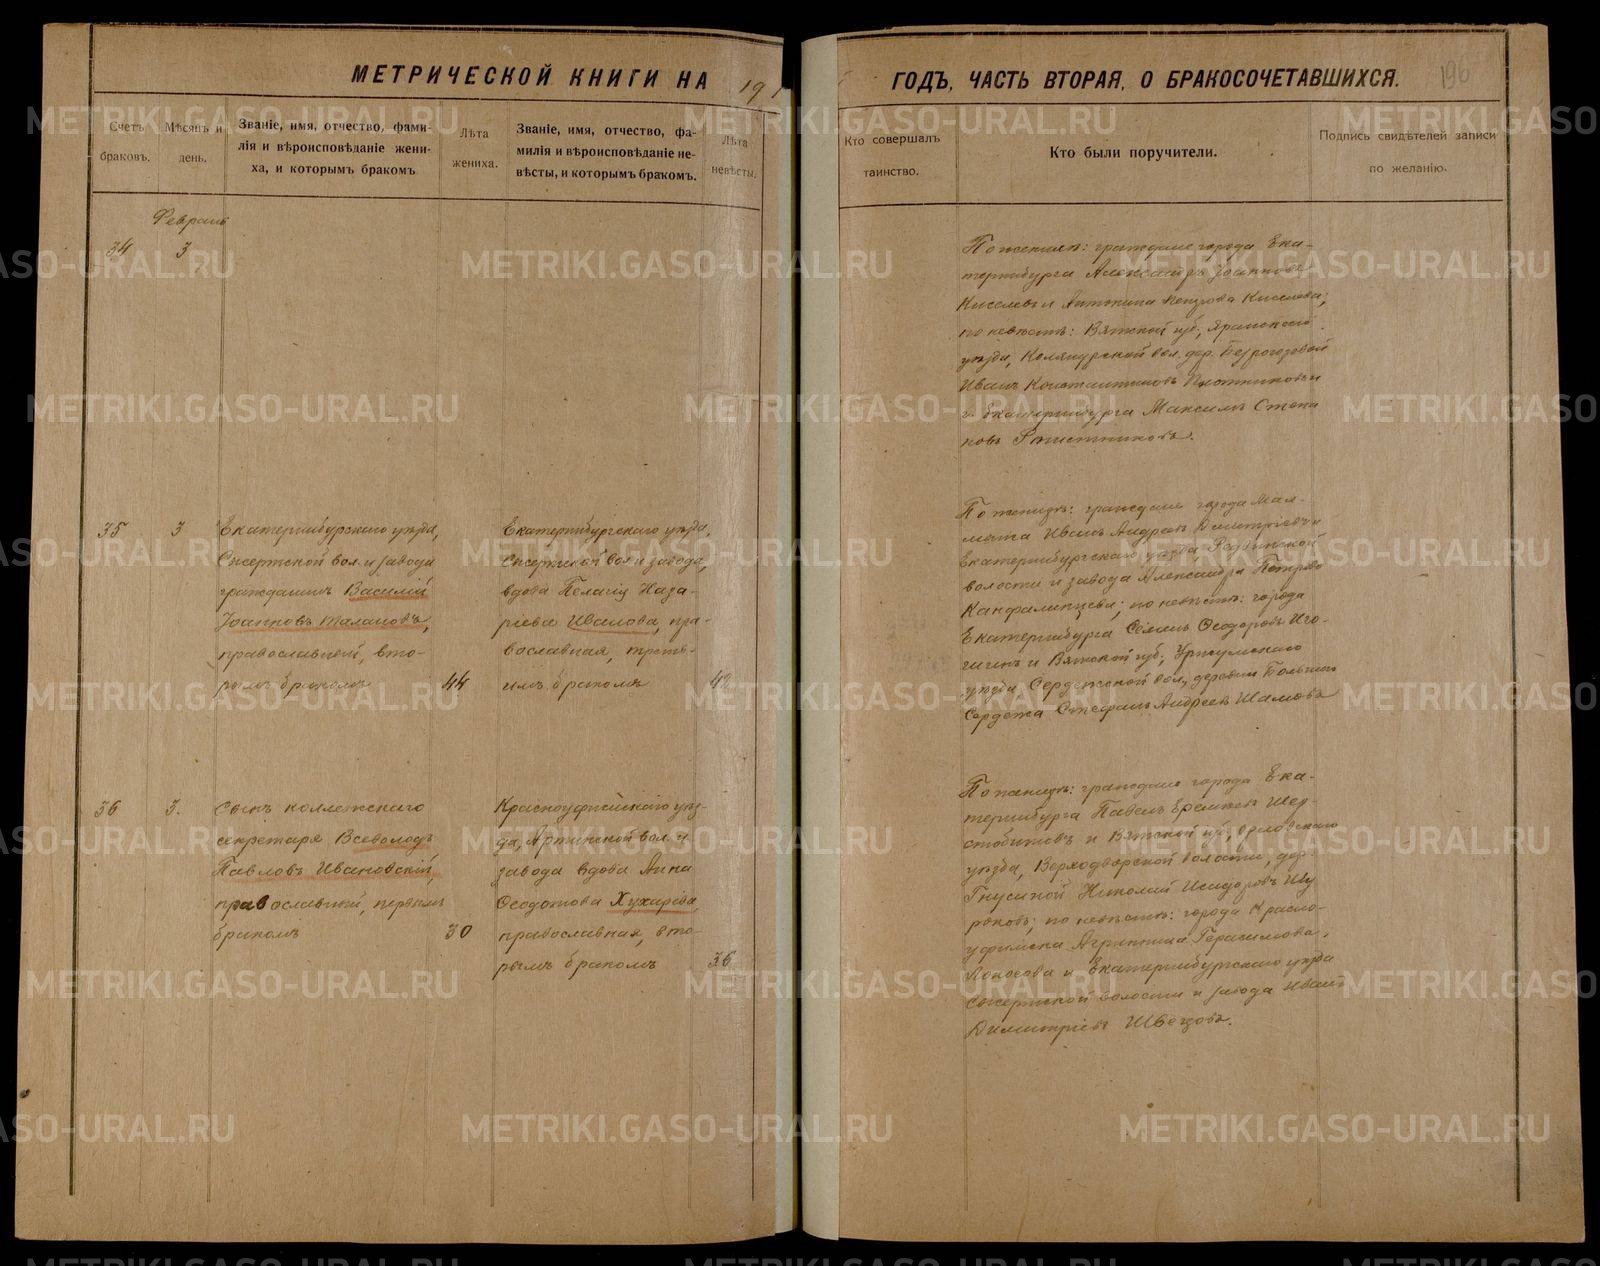 МЕТРИЧЕСКОЙ КНИГИ НА 191
ГОДЪ, ЧАСТЬ ВТОРАЯ, О БРАКОСОЧЕТАВШИХСЯ.
196
Счетъ
браковъ.
Мѣсяцъ и
день.
Званіе, имя, отчество, фами-
лія и вѣроисповѣданіе жени-
ха, и которымъ бракомъ
Лѣта
жениха.
Званіе, имя, отчество, фа-
милія и вѣроисповѣданіе не-
вѣсты, и которымъ бракомъ.
Лѣта
невѣсты.
Кто совершалъ
таинство.
Кто были поручители.
Подпись свидѣтелей записи
по желанію.
Февраль
34
3
По женихѣ: граждане города Ека-
теринбурга Александръ Іоанновъ
Киселевъ и Антонина Петрова Киселева;
по невѣстѣ: Вятской губ., Яранскаго
уѣзда, вол. дер.
Иванъ Константиновъ Плотниковъ и
г. Екатеринбурга Максимъ Степа
новъ
35
3
Екатеринбургскаго уѣзда,
Сысертской вол. и завода
гражданинъ Василій
Іоанновъ Талановъ,
православный, вто-
рымъ бракомъ
44
Екатеринбургскаго уѣзда,
Сысертской вол. и завода,
вдова Пелагія Наза-
ріева Иванова, пра-
вославная, треть-
имъ бракомъ
42
По женихѣ: граждане города Мал-
мыжа Иванъ Андреевъ Димитріевъ и
Екатеринбургскаго уѣзда, Ревдинской
волости и завода Александра Петрова
по невѣстѣ: города
Екатеринбурга Семенъ Ѳеодоровъ Иго-
шинъ и Вятской губ., Уржумскаго
уѣзда Сердежской вол., деревни Большаго
Сердежа Стефанъ Андреевъ Шаловъ
36
3.
Сынъ коллежскаго
секретаря Всеволодъ
Павловъ Ивановскій,
православный, первымъ
бракомъ
30
Красноуфимскаго уѣз-
да, Артинской вол. и
завода вдова Анна
Ѳеодотова Хухарева,
православная, вто-
рымъ бракомъ
36
По женихѣ: граждане города Ека-
теринбурга Павелъ Шер-
стобитовъ и Вятской губ., Орловскаго
уѣзда, Верходворской волости, дер.
Гнусиной Николай Исидоровъ Шу
роковъ; по невѣстѣ: города Красно-
уфимска Агриппина Герасимова
Локосова и Екатеринбургскаго уѣзда
Сысертской волости и завода Иванъ
Димитріевъ Швецовъ.
METRIKI.GASO-URAL.RU